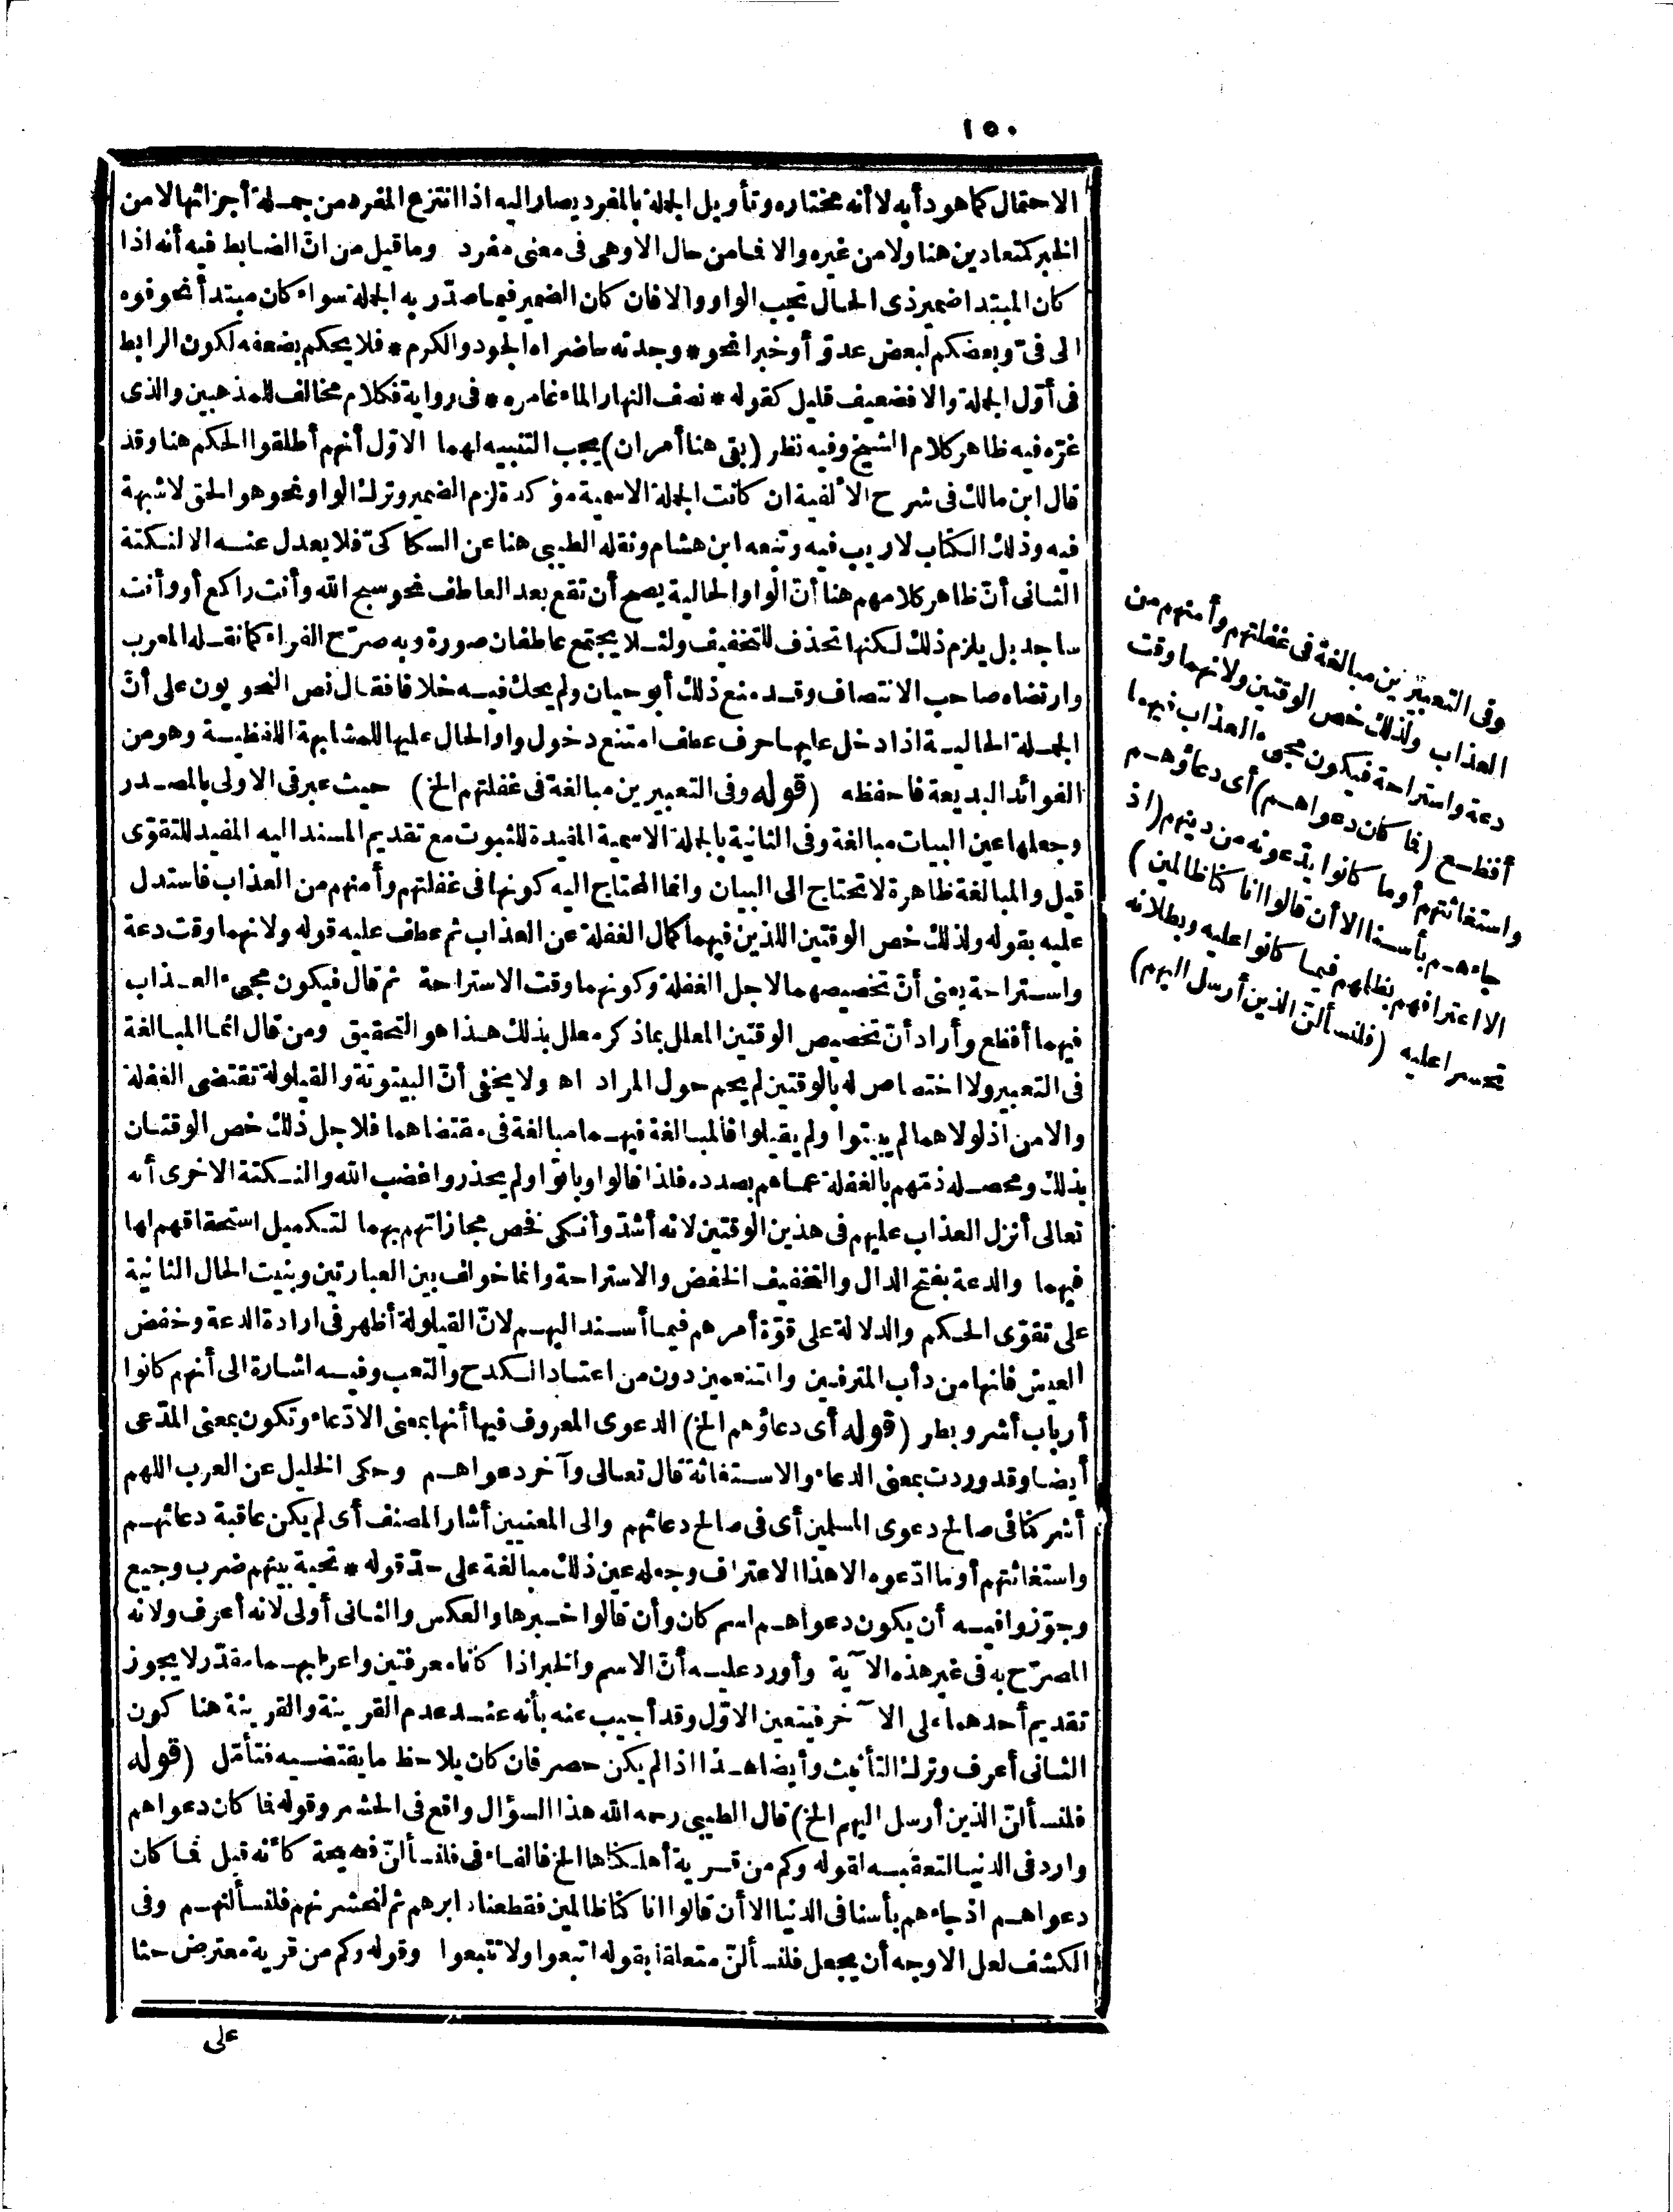 ١٥٠
الاحتمال كما هو دأبه لا أنه مختاره وتأويل الجملة بالمفرد يصار اليه اذا انتزع المفرد من جملة أجزائها لا من
الخبر كمتعادين هنا ولا من غيره والا فما من حال الا وهى فى معنى مفرد وما قيل من انّ الضابط فيه أنه اذا
كان المبتدا ضمير ذى الحال تجب الواو والا فان كان الضمير فيما صدّر به الجملة سواء كان مبتدأ نحو فوه
الى فىّ وبعضكم لبعض عدوّ أو خبرا نحو * وجدته حاضراه الجود والكرم * فلا يحكم بضعفه لكون الرابط
فى أوّل الجملة والا فضعيف قليل كقوله * نصف النهار الماء غامره * فى رواية فكلام مخالف للمذهبين والذى
غرّه فيه ظاهر كلام الشيخ وفيه نظر (بقى هنا أمران) يجب التنبيه لهما الاوّل أنهم أطلقوا الحكم هنا وقد
قال ابن مالك فى شرح الألفية ان كانت الجملة الاسمية مؤكدة لزم الضمير وترك الواو نحو هو الحق لا شبهة
فيه وذلك الكتاب لا ريب فيه وتبعه ابن هشام ونقله الطيبى هنا عن السكاكىّ فلا يعدل عنه الا لنكتة
الثانى أنّ ظاهر كلامهم هنا أنّ الواو الحالية يصح أن تقع بعد العاطف نحو سبح الله وأنت راكع أو وأنت
ساجد بل يلزم ذلك لكنها تحذف للتخفيف ولئلا يجتمع عاطفان صورة وبه صرّح الفراء كما نقله المعرب
وارتضاه صاحب الانتصاف وقد منع ذلك أبو حيان ولم يحك فيه خلافا فقال نص النحويون على أنّ
الجملة الحالية اذا دخل عليها حرف عطف امتنع دخول واو الحال عليها للمشابهة اللفظية وهو من
الفوائد البديعة فاحفظه (قوله وفى التعبيرين مبالغة فى غفلتهم الخ) حيث عبر فى الاولى بالمصدر
وجعلها عين البيات مبالغة وفى الثانية بالجملة الاسمية المفيدة للثبوت مع تقديم المسند اليه المفيد للتقوّى
قيل والمبالغة ظاهرة لا تحتاج الى البيان وانما المحتاج اليه كونها فى غفلتهم وأمنهم من العذاب فاستدل
عليه بقوله ولذلك خص الوقتين اللذين فيهما كمال الغفلة عن العذاب ثم عطف عليه قوله ولانهما وقت دعة
واستراحة يعنى أنّ تخصيصهما لاجل الغفلة وكونهما وقت الاستراحة ثم قال فيكون مجىء العذاب
فيهما أفظع وأراد أنّ تخصيص الوقتين المعلل بما ذكر معلل بذلك هذا هو التحقيق ومن قال انما المبالغة
فى التعبير ولا اختصاص له بالوقتين لم يحم حول المراد اه ولا يخفى أنّ البيتوتة والقيلولة تقتضى الغفلة
والامن اذ لولاهما لم يبيتوا ولم يقيلوا فالمبالغة فيهما مبالغة فى مقتضاهما فلاجل ذلك خص الوقتان
بذلك ومحصله ذمّهم بالغفلة عما هم بصدده فلذا قالوا وباتوا ولم يحذروا غضب الله والنكتة الاخرى أنه
تعالى أنزل العذاب عليهم فى هذين الوقتين لانه أشدّ وأنكى فخص مجازاتهم بهما لتكميل استحقاقهم لها
فيهما والدعة بفتح الدال والتخفيف الخفض والاستراحة وانما خولف بين العبارتين وبنيت الحال الثانية
على تقوّى الحكم والدلالة على قوّة أمرهم فيما أسند اليهم لانّ القيلولة أظهر فى ارادة الدعة وخفض
العيش فانها من دأب المترفين والمتنعمين دون من اعتاد الكدح والتعب وفيه اشارة الى أنهم كانوا
أرباب أشر وبطر (قوله أى دعاؤهم الخ) الدعوى المعروف فيها أنها بمعنى الادّعاء وتكون بمعنى المدّعى
أيضا وقد وردت بمعنى الدعاء والاستغاثة قال تعالى وآخر دعواهم وحكى الخليل عن العرب اللهم
أشركنا فى صالح دعوى المسلمين أى فى صالح دعائهم والى المعنيين أشار المصنف أى لم يكن عاقبة دعائهم
واستغاثتهم أو ما ادّعوه الا هذا الاعتراف وجعله عين ذلك مبالغة على حدّ قوله * تحية بينهم ضرب وجيع
وجوّزوا فيه أن يكون دعواهم اسم كان وأن قالوا خبرها والعكس والثانى أولى لانه أعرف ولانه
المصرّح به فى غير هذه الآية وأورد عليه أنّ الاسم والخبر اذا كانا معرفتين واعرابهما مقدّر لا يجوز
تقديم أحدهما على الآخر فيتعين الاوّل وقد أجيب عنه بأنه عند عدم القرينة والقرينة هنا كون
الثانى أعرف وترك التأنيث وأيضا هذا اذا لم يكن حصر فان كان يلاحظ ما يقتضيه فتأمّل (قوله
فلنسألنّ الذين أرسل اليهم الخ) قال الطيبى رحمه الله هذا السؤال واقع فى الحشر وقوله فما كان دعواهم
وارد فى الدنيا لتعقيبه لقوله وكم من قرية أهلكناها الخ فالفاء فى فلنسألنّ فصيحة كأنه قيل فما كان
دعواهم اذ جاءهم بأسنا فى الدنيا الا أن قالوا انا كنا ظالمين فقطعنا دابرهم ثم لنحشرنهم فلنسألنهم وفى
الكشف لعل الاوجه أن يجعل فلنسألنّ متعلقا بقوله اتبعوا ولا تتبعوا وقوله وكم من قرية معترض حثا
على
وفى التعبيرين مبالغة فى غفلتهم وأمنهم من
العذاب ولذلك خص الوقتين ولانهما وقت
دعة واستراحة فيكون مجىء العذاب فيهما
أفظع (فما كان دعواهم) أى دعاؤهم
واستغاثتهم أو ما كانوا يدّعونه من دينهم (اذ
جاءهم بأسنا الا أن قالوا انا كنا ظالمين)
الا اعترافهم بظلمهم فيما كانوا عليه وبطلانه
تحسرا عليه (فلنسألنّ الذين أرسل اليهم)